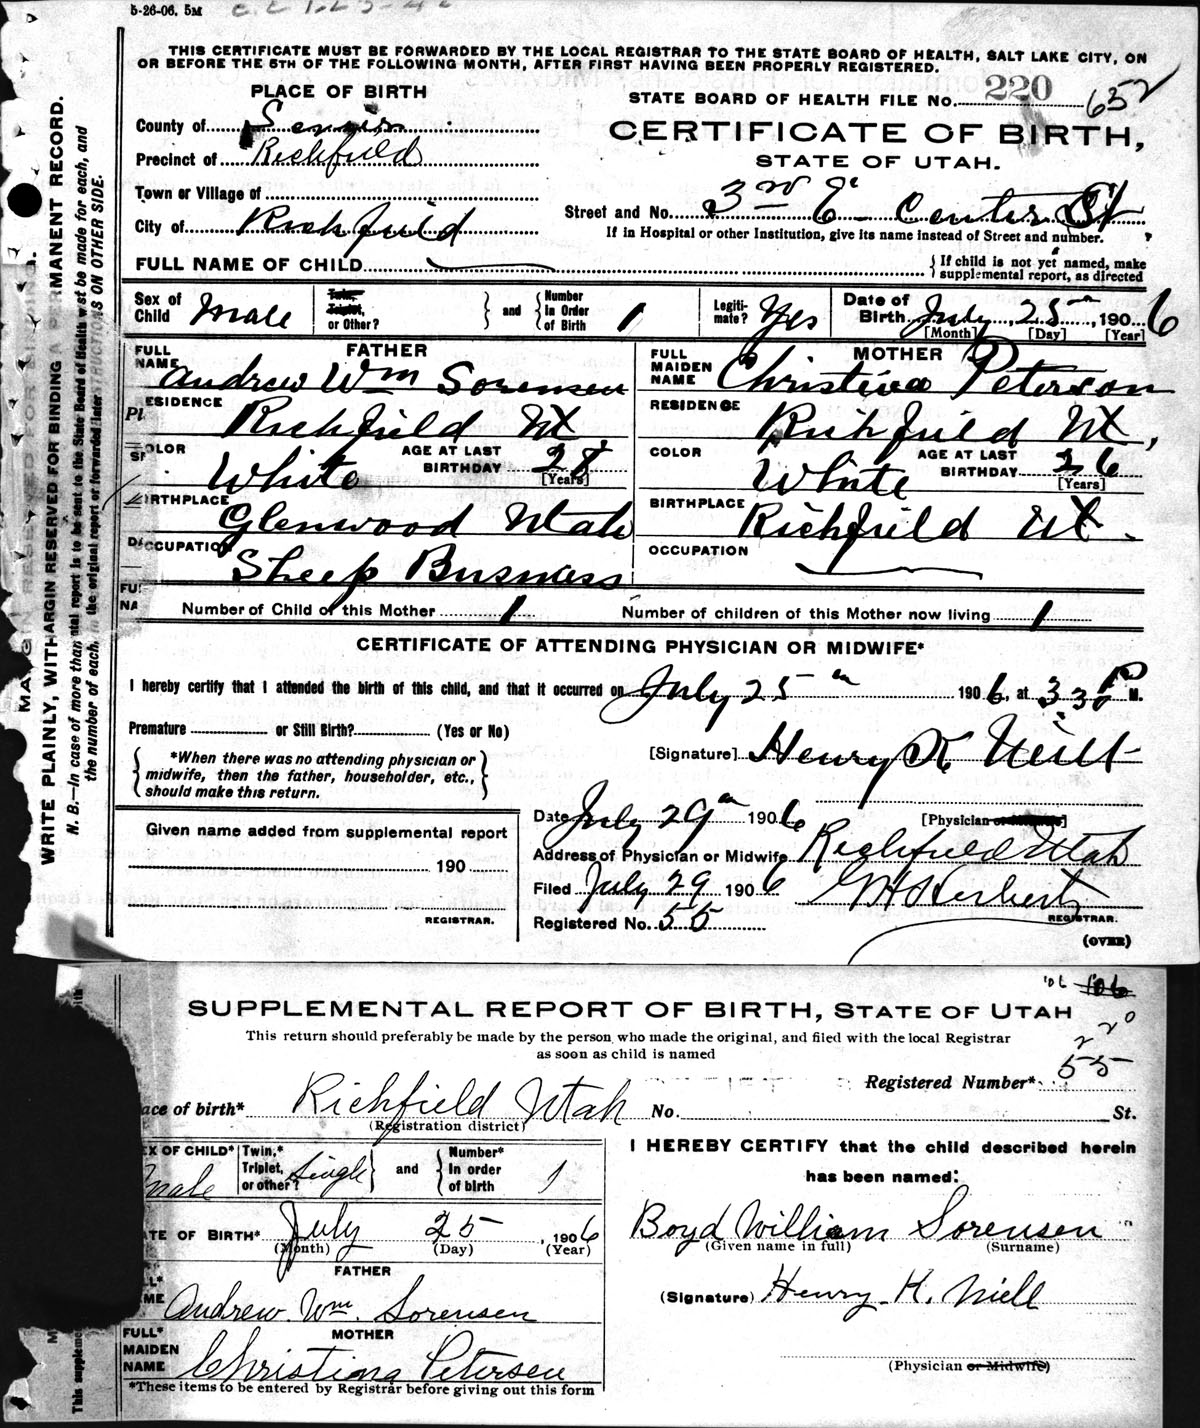 5-26-06. 5M
THIS CERTIFICATE MUST BE FORWARDED BY THE LOCAL REGISTRAR TO THE STATE BOARD OF HEALTH, SALT LAKE CITY, ON
OR BEFORE THE 5TH OF THE FOLLOWING MONTH, AFTER FIRST HAVING BEEN PROPERLY REGISTERED.
PLACE OF BIRTH
STATE BOARD OF HEALTH FILE No. 220 652
County of Sevier
CERTIFICATE OF BIRTH,
Precinct of Richfield
STATE OF UTAH.
Town or Village of
Street and No. 3rd E Center St
City of Richfield
If in Hospital or other Institution, give its name instead of Street and number.
FULL NAME OF CHILD
If child is not yet named, make
supplemental report, as directed
Sex of Child Male
Twin, Triplet, or Other? and Number In Order of Birth 1
Legitimate? Yes
Date of Birth July 25th, 1906
[Month] [Day] [Year]
FATHER
FULL NAME Andrew Wm Sorensen
RESIDENCE Richfield Ut
COLOR White AGE AT LAST BIRTHDAY 28 [Years]
BIRTHPLACE Glenwood Utah
OCCUPATION Sheep Business
MOTHER
FULL MAIDEN NAME Christina Peterson
RESIDENCE Richfield Ut,
COLOR White AGE AT LAST BIRTHDAY 26 [Years]
BIRTHPLACE Richfield Ut.
OCCUPATION
Number of Child of this Mother 1 Number of children of this Mother now living 1
CERTIFICATE OF ATTENDING PHYSICIAN OR MIDWIFE*
I hereby certify that I attended the birth of this child, and that it occurred on July 25th 1906, at 3 30 P M.
Premature or Still Birth? (Yes or No)
*When there was no attending physician or
midwife, then the father, householder, etc.,
should make this return.
[Signature] Henry K. Neill
[Physician or Midwife]
Given name added from supplemental report
190
REGISTRAR.
Date July 29th 1906
Address of Physician or Midwife Richfield Utah
Filed July 29 1906 G H Herbert
Registered No. 55 REGISTRAR.
(OVER)
WRITE PLAINLY, WITH
MANENT RECORD.
N. B.—In case of more than
'06 106
SUPPLEMENTAL REPORT OF BIRTH, STATE OF UTAH
This return should preferably be made by the person who made the original, and filed with the local Registrar
as soon as child is named
220
Registered Number* 55
ace of birth* Richfield Utah No. St.
(Registration district)
EX OF CHILD* Male
Twin,* Triplet, or other? Single and Number* In order of birth 1
TE OF BIRTH* July 25, 1906
(Month) (Day) (Year)
FATHER
Andrew Wm. Sorensen
MOTHER
FULL* MAIDEN NAME Christiana Petersen
*These items to be entered by Registrar before giving out this form
I HEREBY CERTIFY that the child described herein
has been named:
Boyd William Sorensen
(Given name in full) (Surname)
(Signature) Henry K. Niell
(Physician or Midwife)